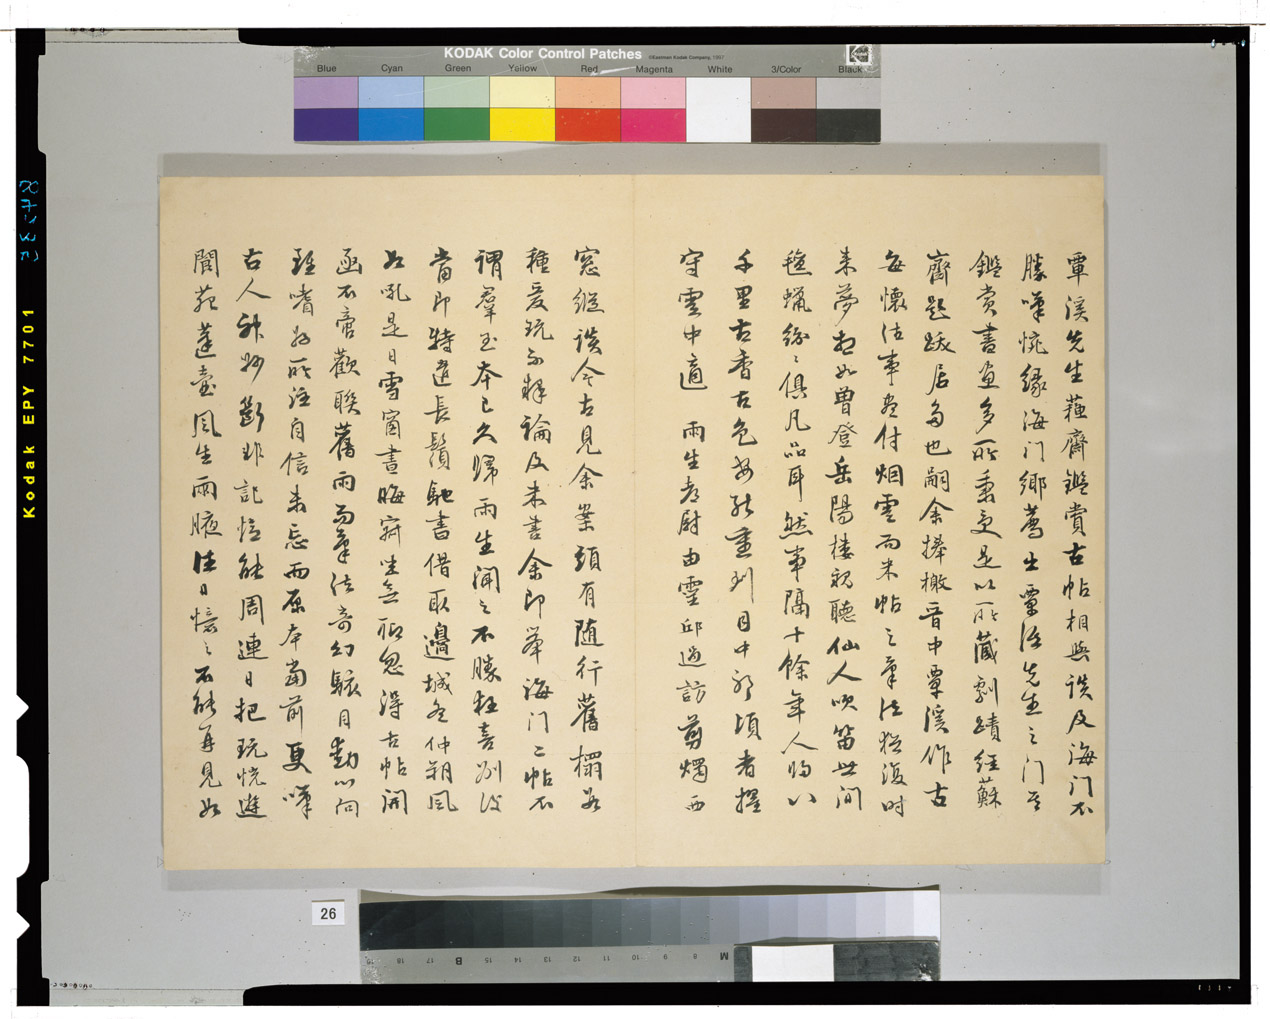 KODAK Color Control Patches
©Eastman Kodak Company, 1997
Blue Cyan Green Yellow Red Magenta White 3/Color Black
Kodak EPY 7701
覃溪先生蘇齋鑑賞古帖相與談及海门不
勝嘆惋緣海门鄉薦出覃溪先生之门
鑑賞書畫多所秉更是以所藏劇蹟經蘇
齋題跋居多也嗣余捧檄晋中覃溪作古
每懷往事盡付烟雲而米帖之筆法猶復時
來夢想如曾登岳陽樓親聽仙人吹笛世间
種蠟紛々俱凡品耳然事隔十餘年人以
千里古香古色安能重到目中邪頃者擢
守雲中適 雨生都尉由靈邱過訪剪燭西
窓縱談今古見余案頭有随行舊榻
種爰玩不釋論及米書余即舉海门二帖不
謂羣玉本已久歸雨生聞之不勝狂喜別後
當即特遣長鬚馳書借取邊城冬仲朔風
如吼是日雪窗晝晦寂坐無聊忽得古帖開
函不啻歡聯舊雨而筆法奇幻駭目動心向
雖嗜好所注自信未忘而原本當前更嘆
古人神妙斷非記憶能周連日把玩恍遊
閬苑蓬壺風生兩腋往日憶之不能再見如
26
M 8 9 10 11 12 13 14 15 B 17 18 19